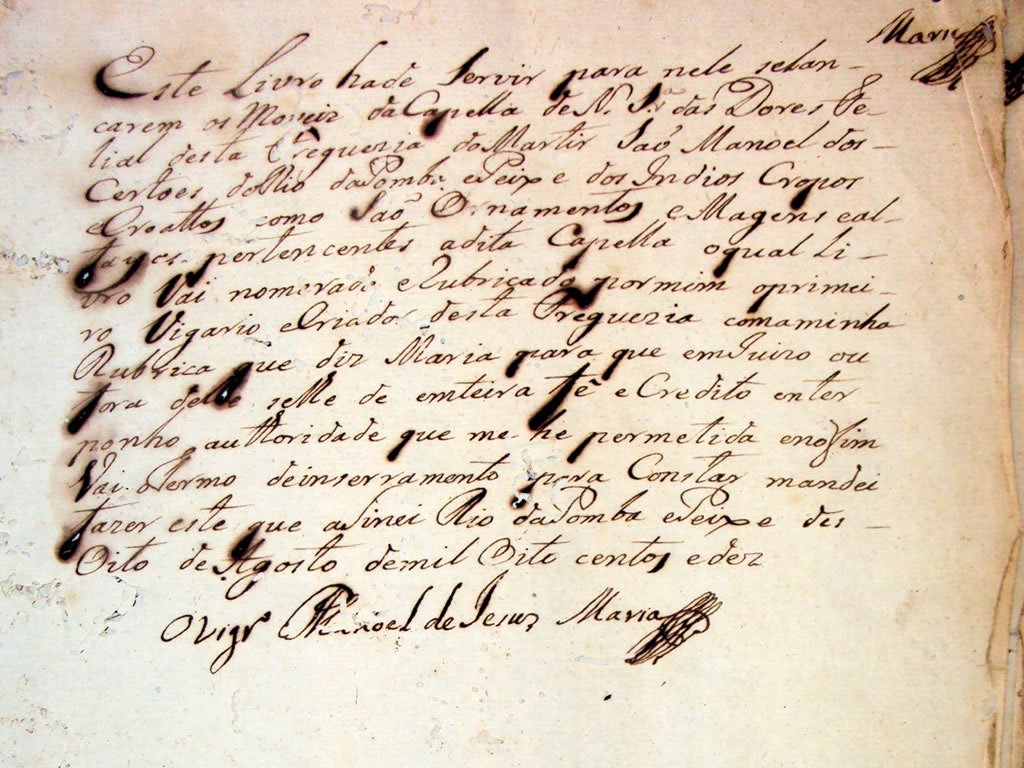 Maria
Este Livro hade Servir para nele selan-
carem os Moveiz da Capella de N. Sr.ª das Dores Fe-
lial desta Freguezia do Martir Saõ Manoel dos
Certoes do Rio da Pomba e Peixe dos Indios Cropos
e Croattos como Saõ Ornamentos e Magens eal-
tayes pertencentes adita Capella oqual Li-
vro Vai nomerado e Rubricado pormim oprimei-
ro Vigario e Criador desta Freguezia comaminha
Rubrica que diz Maria para que em Juizo ou
fora delle selhe de emteira fê e Credito enter-
ponho authoridade que me he permetida enofim
Vai o termo deinserramento para Constar mandei
fazer este que aSinei Rio da Pomba e Peixe des-
Oito de Agosto demil Oito centos e dez
O Vigr.º Manoel de Jesuz Maria